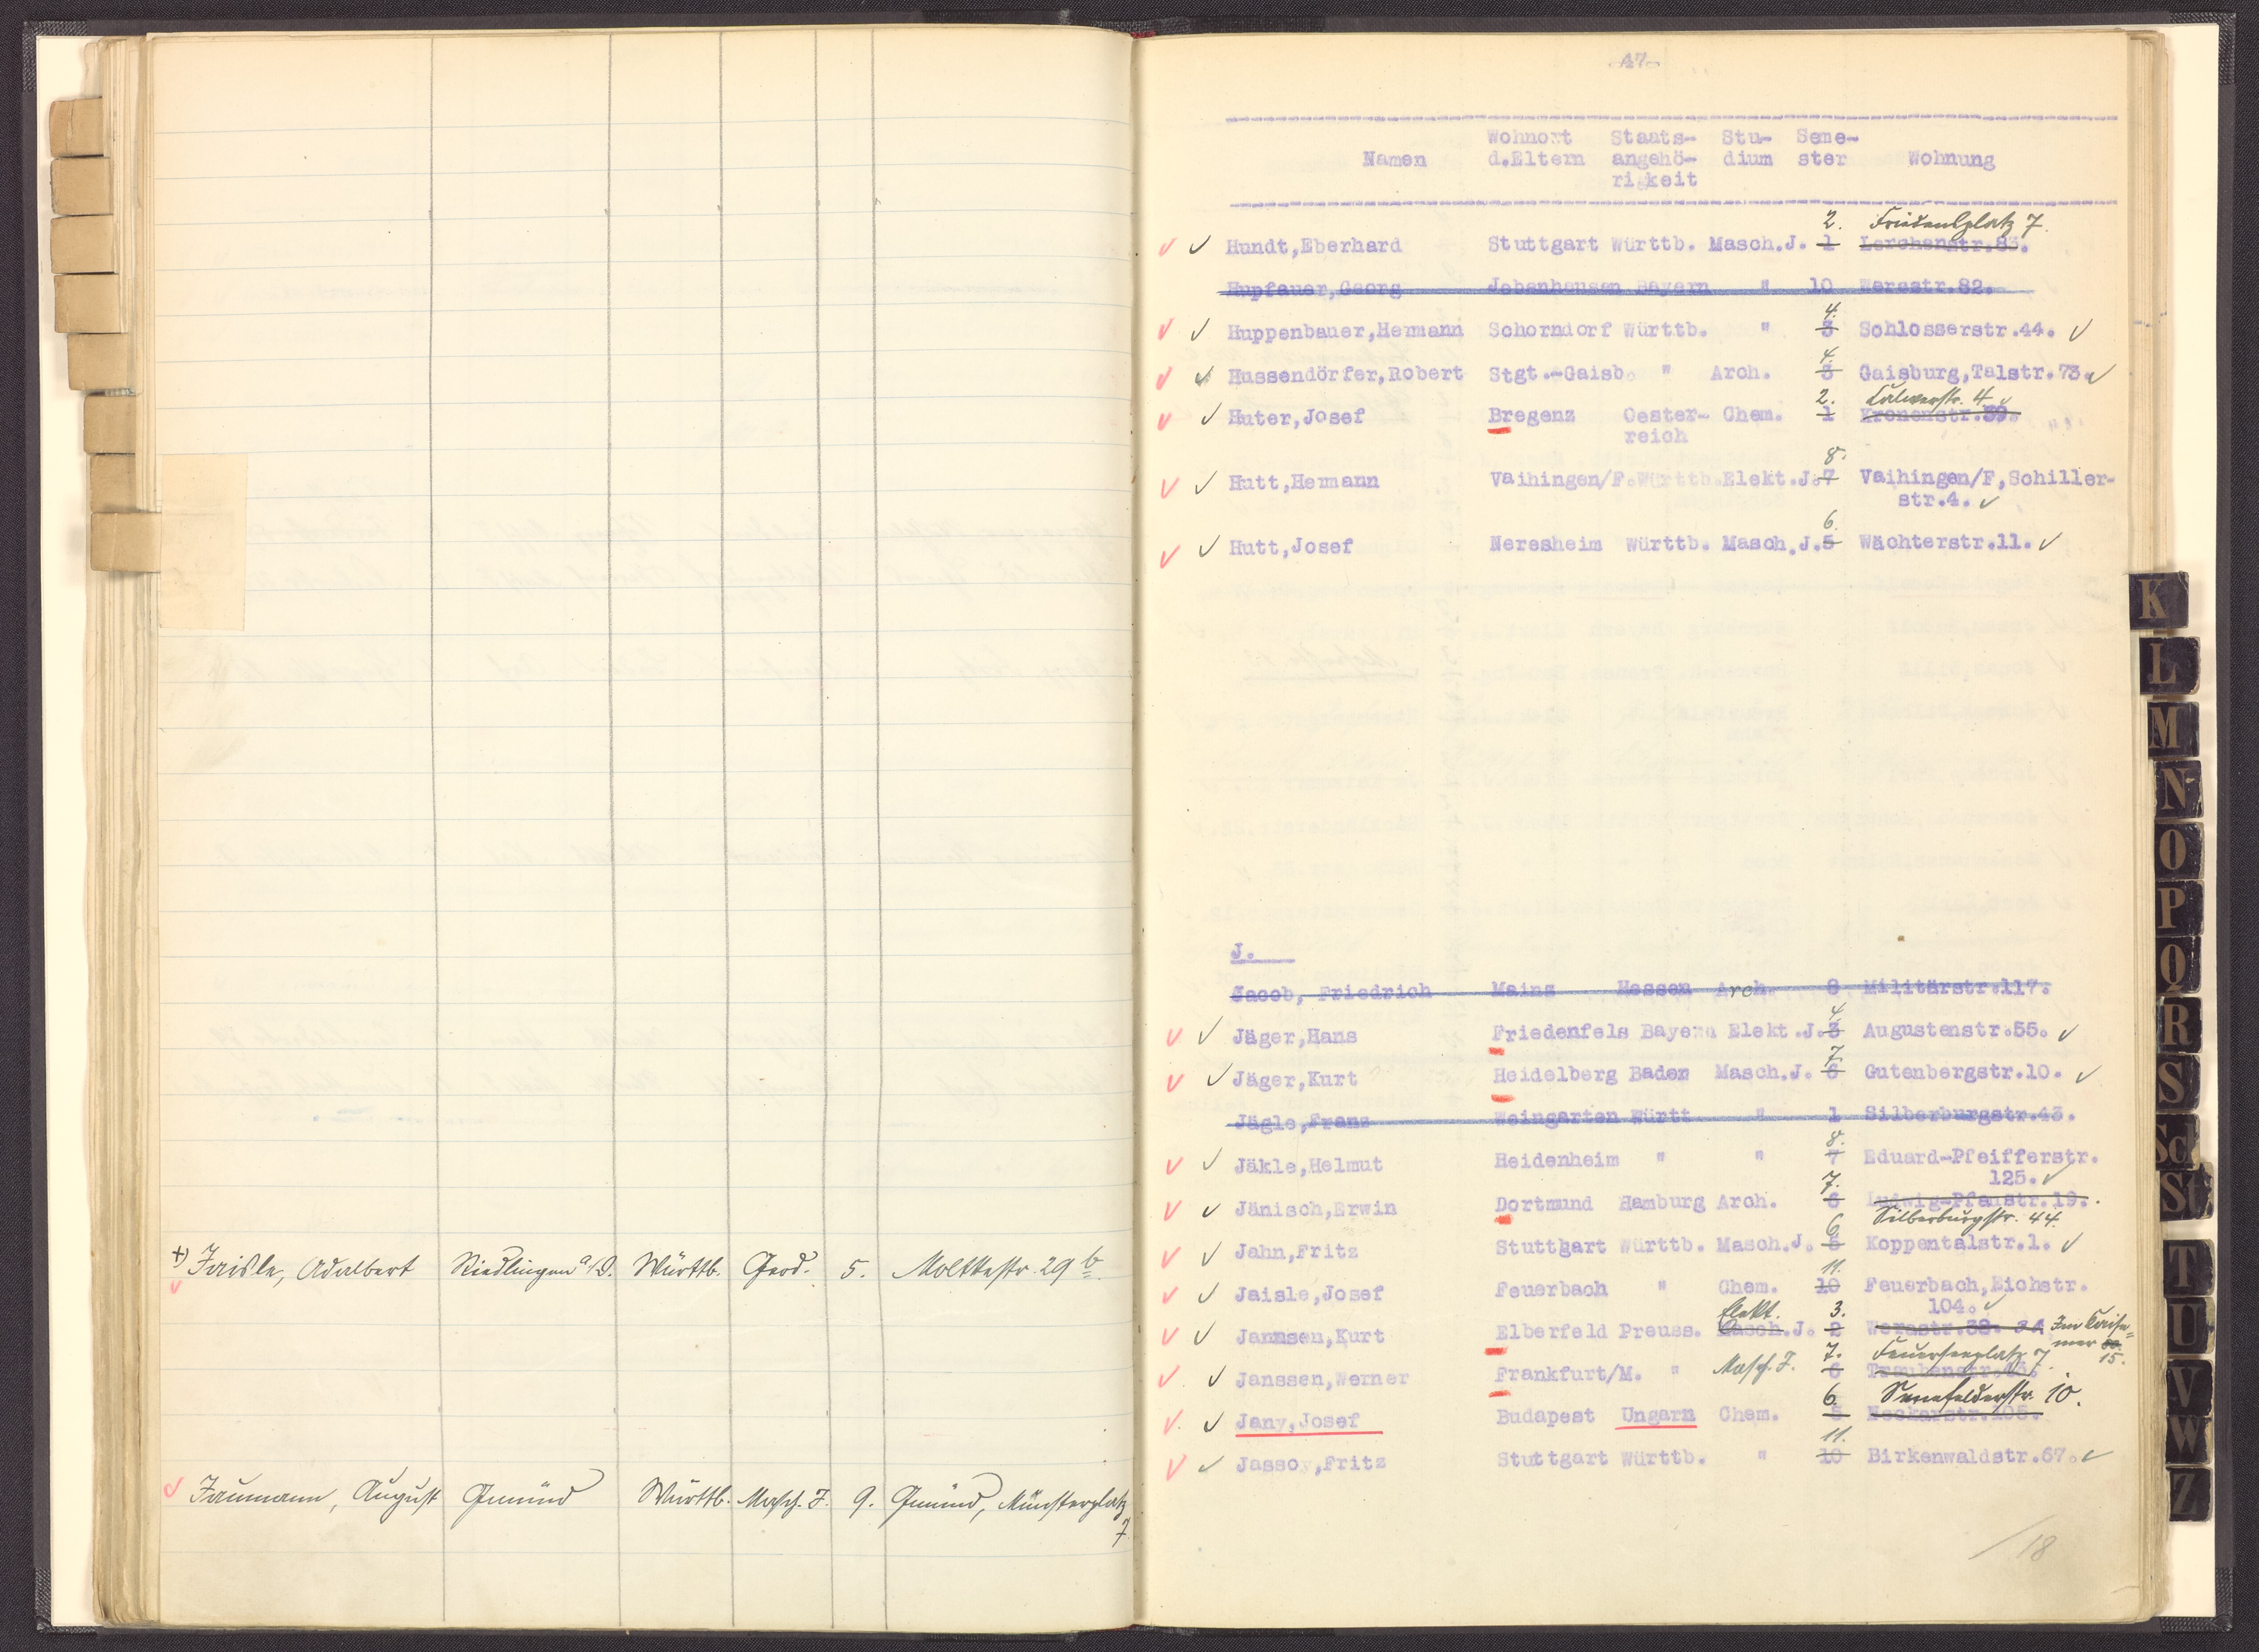 +) Jaisle, Adalbert Riedlingen a/D. Württb. Geod. 5. Moltkestr. 29 b.
Jaumann, August Gmünd Württb. Masch. J. 9. Gmünd, Münsterplatz
7.
-47-
Wohnort Staats- Stu- Seme-
Namen d.Eltern angehö- dium ster Wohnung
rigkeit
2. Friedensplatz 7.
Hundt,Eberhard Stuttgart Württb. Masch.J. 1 Lerchenstr.83.
Hupfauer,Georg Jebenhausen Bayern " 10 Werastr.82.
4.
Huppenbauer,Hermann Schorndorf Württb. " 3 Schlosserstr.44.
4.
Hussendörfer,Robert Stgt.-Gaisb. " Arch. 3 Gaisburg,Talstr.73.
2. Calwerstr. 4.
Huter,Josef Bregenz Oester- Chem. 1 Kronenstr.39.
reich
8.
Hutt,Hermann Vaihingen/F.Württb.Elekt.J.7 Vaihingen/F,Schiller-
str.4.
6.
Hutt,Josef Neresheim Württb. Masch.J.5 Wächterstr.11.
J.
Jacob, Friedrich Mainz Hessen Arch. 8 Militärstr.117.
4.
Jäger,Hans Friedenfels Bayern Elekt.J.3 Augustenstr.55.
7.
Jäger,Kurt Heidelberg Baden Masch.J. 6 Gutenbergstr.10.
Jägle,Franz Weingarten Württ " 1 Silberburgstr.43.
8.
Jäkle,Helmut Heidenheim " " 7 Eduard-Pfeifferstr.
125.
7.
Jänisch,Erwin Dortmund Hamburg Arch. 6 Ludwig-Pfaustr.19.
6. Silberburgstr. 44.
Jahn,Fritz Stuttgart Württb. Masch.J. 5 Koppentalstr.1.
11.
Jaisle,Josef Feuerbach " Chem. 10 Feuerbach,Eichstr.
104.
Elekt. 3.
Jannsen,Kurt Elberfeld Preuss. Masch.J. 2 Werastr.38. Im Kaise-
mer 15.
7. Feuerseeplatz 7.
Janssen,Werner Frankfurt/M. " Masch. J. 6 Traubenstr.
6. Senefelderstr. 10.
Jany,Josef Budapest Ungarn Chem. 5 Neckarstr.105.
11.
Jassoy,Fritz Stuttgart Württb. " 10 Birkenwaldstr.67.
/18
K
L
M
N
O
P
Q
R
S
Sch
St
T
U
V
W
Z